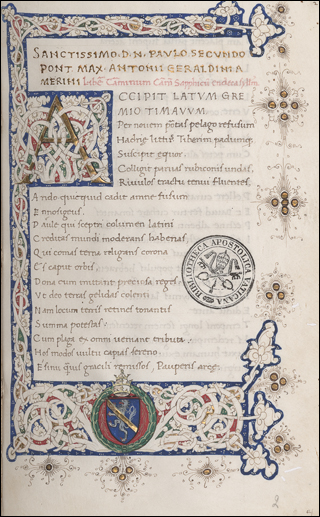 SANCTISSIMO.D.N. PAVLO SECVNDO
PONT MAX. ANTONII GERALDINI A
MERINI Liber Carminum
ACCIPIT LATVM GRE
MIO TIMAVVM
Per novem
Hadrię Tiberim
Suscipit equor
Colligit parvus rubiconis undas
Rivulos tractu tenui fluentes
Ando quicquid cadit amne fusum
E
Paule qui sceptri columen latini
Creditas mundi moderans habenas
Qui comas terna religans corona
capis orbis
Dona cum mittant preciosa reges
Ut deo terras gelidas colenti
Nam locum tenes retines tonantis
Summa potestas
Cum plaga ex omni veniant tributa
Hos modos vultu capias sereno
Et sinu quos gracili remissos, Pauperis arge
BIBLIOTHECA APOSTOLICA VATICANA
2